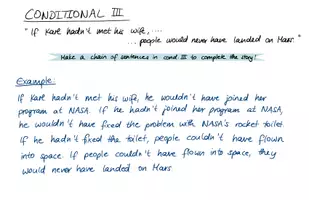 CONDITIONAL III
"If Karl hadn't met his wife, ....
...people would never have landed on Mars."
Make a chain of sentences in cond. III to complete the story!
Example:
If Karl hadn't met his wife, he wouldn't have joined her
program at NASA. If he hadn't joined her program at NASA,
he wouldn't have fixed the problem with NASA's rocket toilet.
If he hadn't fixed the toilet, people couldn't have flown
into space. If people couldn't have flown into space, they
would never have landed on Mars